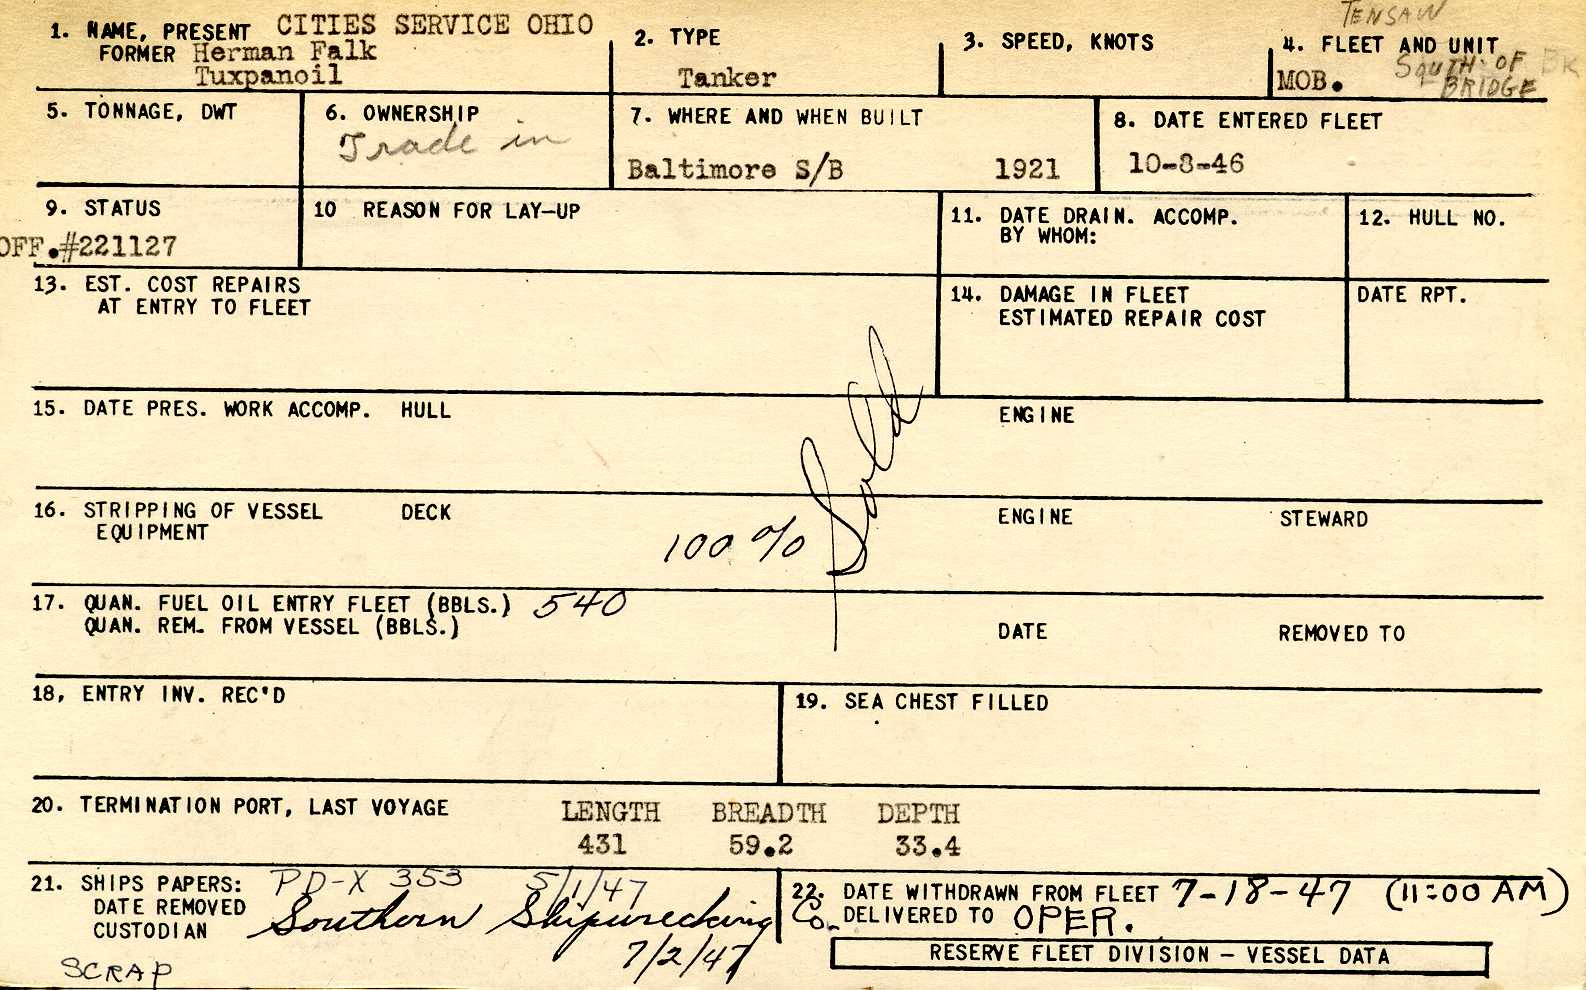 TENSAW
1. NAME, PRESENT CITIES SERVICE OHIO
FORMER Herman Falk
Tuxpanoil
2. TYPE
Tanker
3. SPEED, KNOTS
4. FLEET AND UNIT
MOB. SOUTH OF BR
BRIDGE
5. TONNAGE, DWT
6. OWNERSHIP
Trade in
7. WHERE AND WHEN BUILT
Baltimore S/B 1921
8. DATE ENTERED FLEET
10-8-46
9. STATUS
OFF.#221127
10 REASON FOR LAY-UP
11. DATE DRAIN. ACCOMP.
BY WHOM:
12. HULL NO.
13. EST. COST REPAIRS
AT ENTRY TO FLEET
14. DAMAGE IN FLEET
ESTIMATED REPAIR COST
DATE RPT.
15. DATE PRES. WORK ACCOMP. HULL
ENGINE
16. STRIPPING OF VESSEL DECK
EQUIPMENT
ENGINE
STEWARD
100% Sold
17. QUAN. FUEL OIL ENTRY FLEET (BBLS.) 540
QUAN. REM. FROM VESSEL (BBLS.)
DATE
REMOVED TO
18, ENTRY INV. REC'D
19. SEA CHEST FILLED
20. TERMINATION PORT, LAST VOYAGE
LENGTH BREADTH DEPTH
431 59.2 33.4
21. SHIPS PAPERS: PD-X 353 5/1/47
DATE REMOVED Southern Shipwrecking Co.
CUSTODIAN
7/2/47
SCRAP
22. DATE WITHDRAWN FROM FLEET 7-18-47 (11:00 AM)
DELIVERED TO OPER.
RESERVE FLEET DIVISION - VESSEL DATA